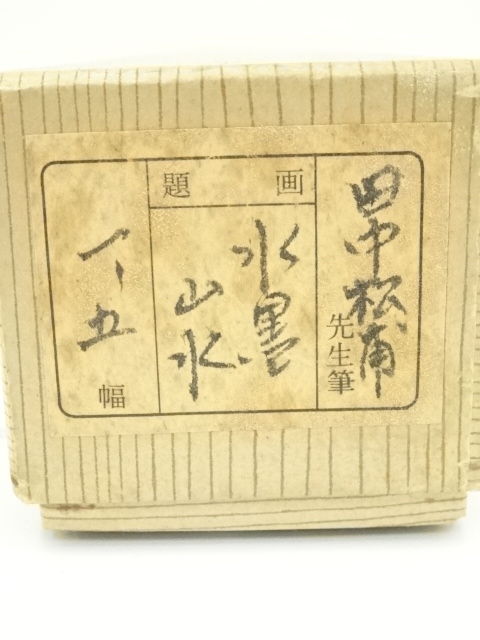 田中松甫
先生筆
画題
水墨
山水
尺五
幅